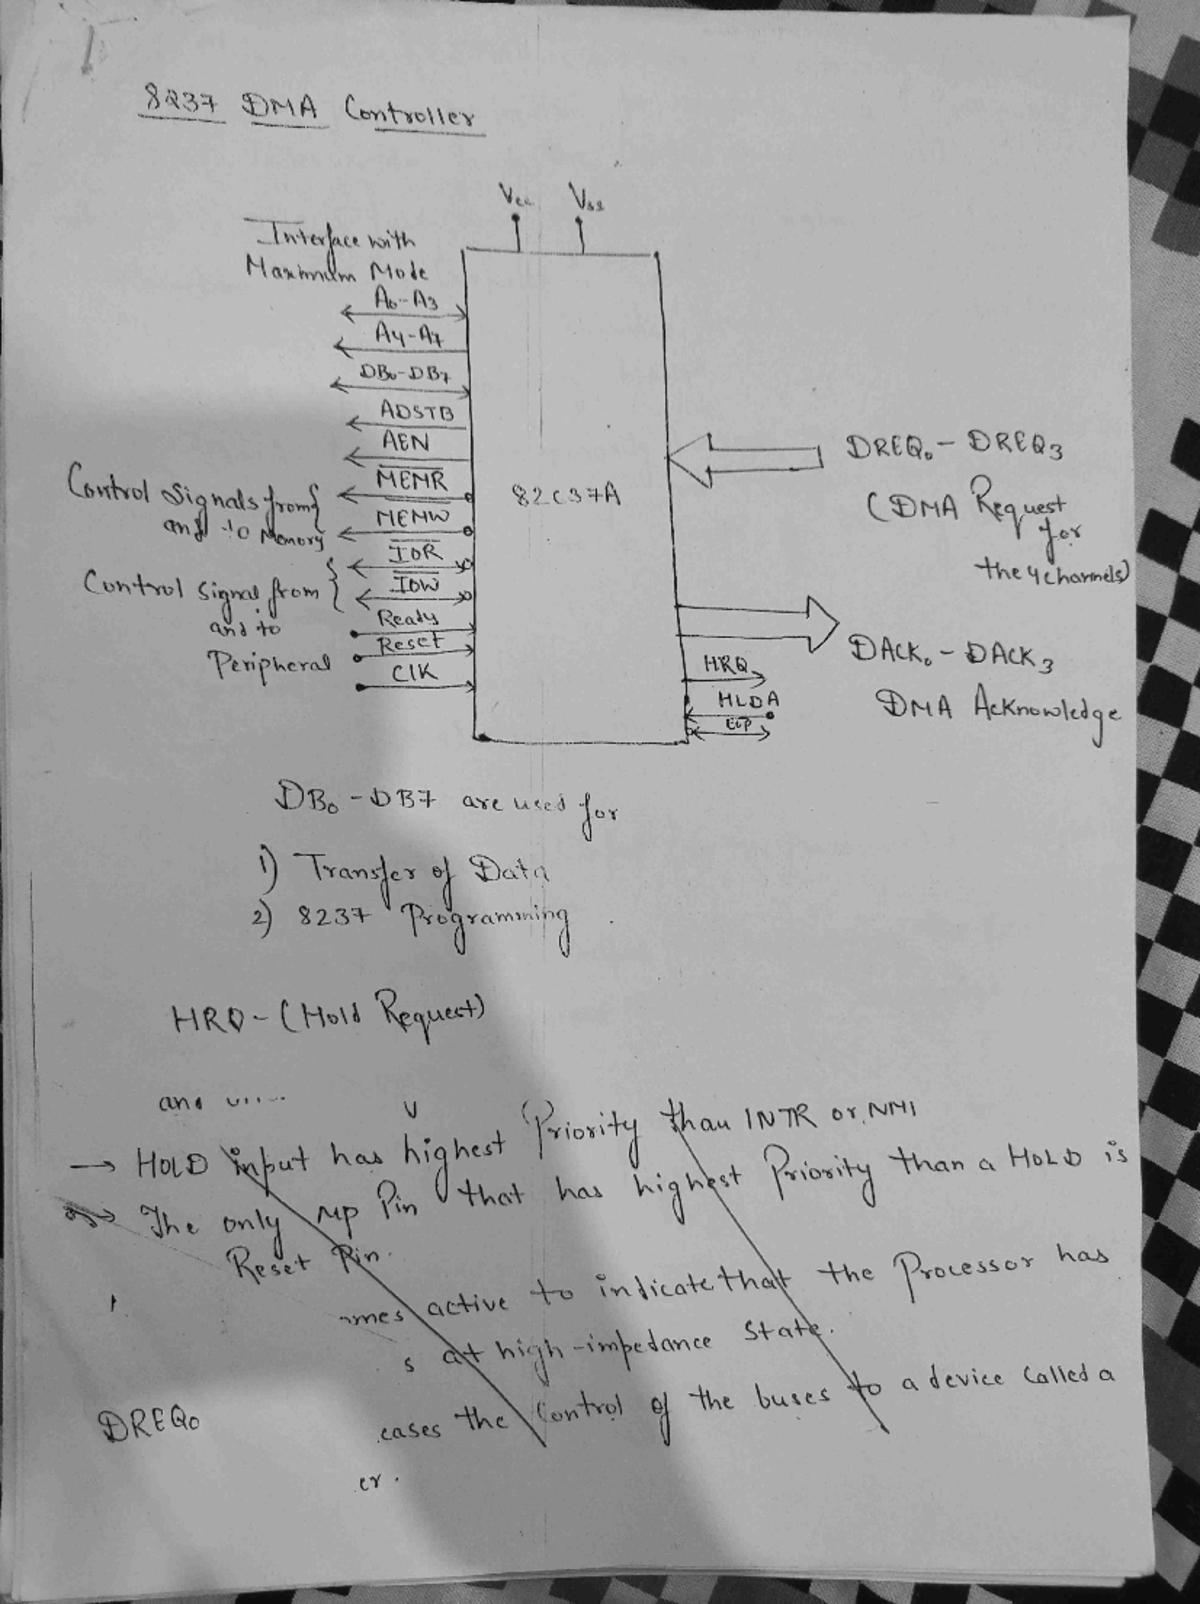 8237 DMA Controller
Vcc Vss
Interface with
Maximum Mode
A0-A3
A4-A7
DB0-DB7
ADSTB
AEN
MEMR
MEMW
IOR
IOW
Ready
Reset
ClK
Control Signals from
and to Memory
Control Signal from
and to
Peripheral
82C37A
DREQ0 - DREQ3
(DMA Request
for
the 4 channels)
DACK0 - DACK3
DMA Acknowledge
HRQ
HLDA
EOP
DB0 - DB7 are used for
1) Transfer of Data
2) 8237 Programming
HRQ - (Hold Request)
and
→ HOLD input has highest Priority than INTR or NMI
→ The only μp Pin that has highest Priority than a HOLD is
Reset Pin.
mes active to indicate that the Processor has
s at high-impedance state.
eases the Control of the buses to a device called a
er.
DREQ0